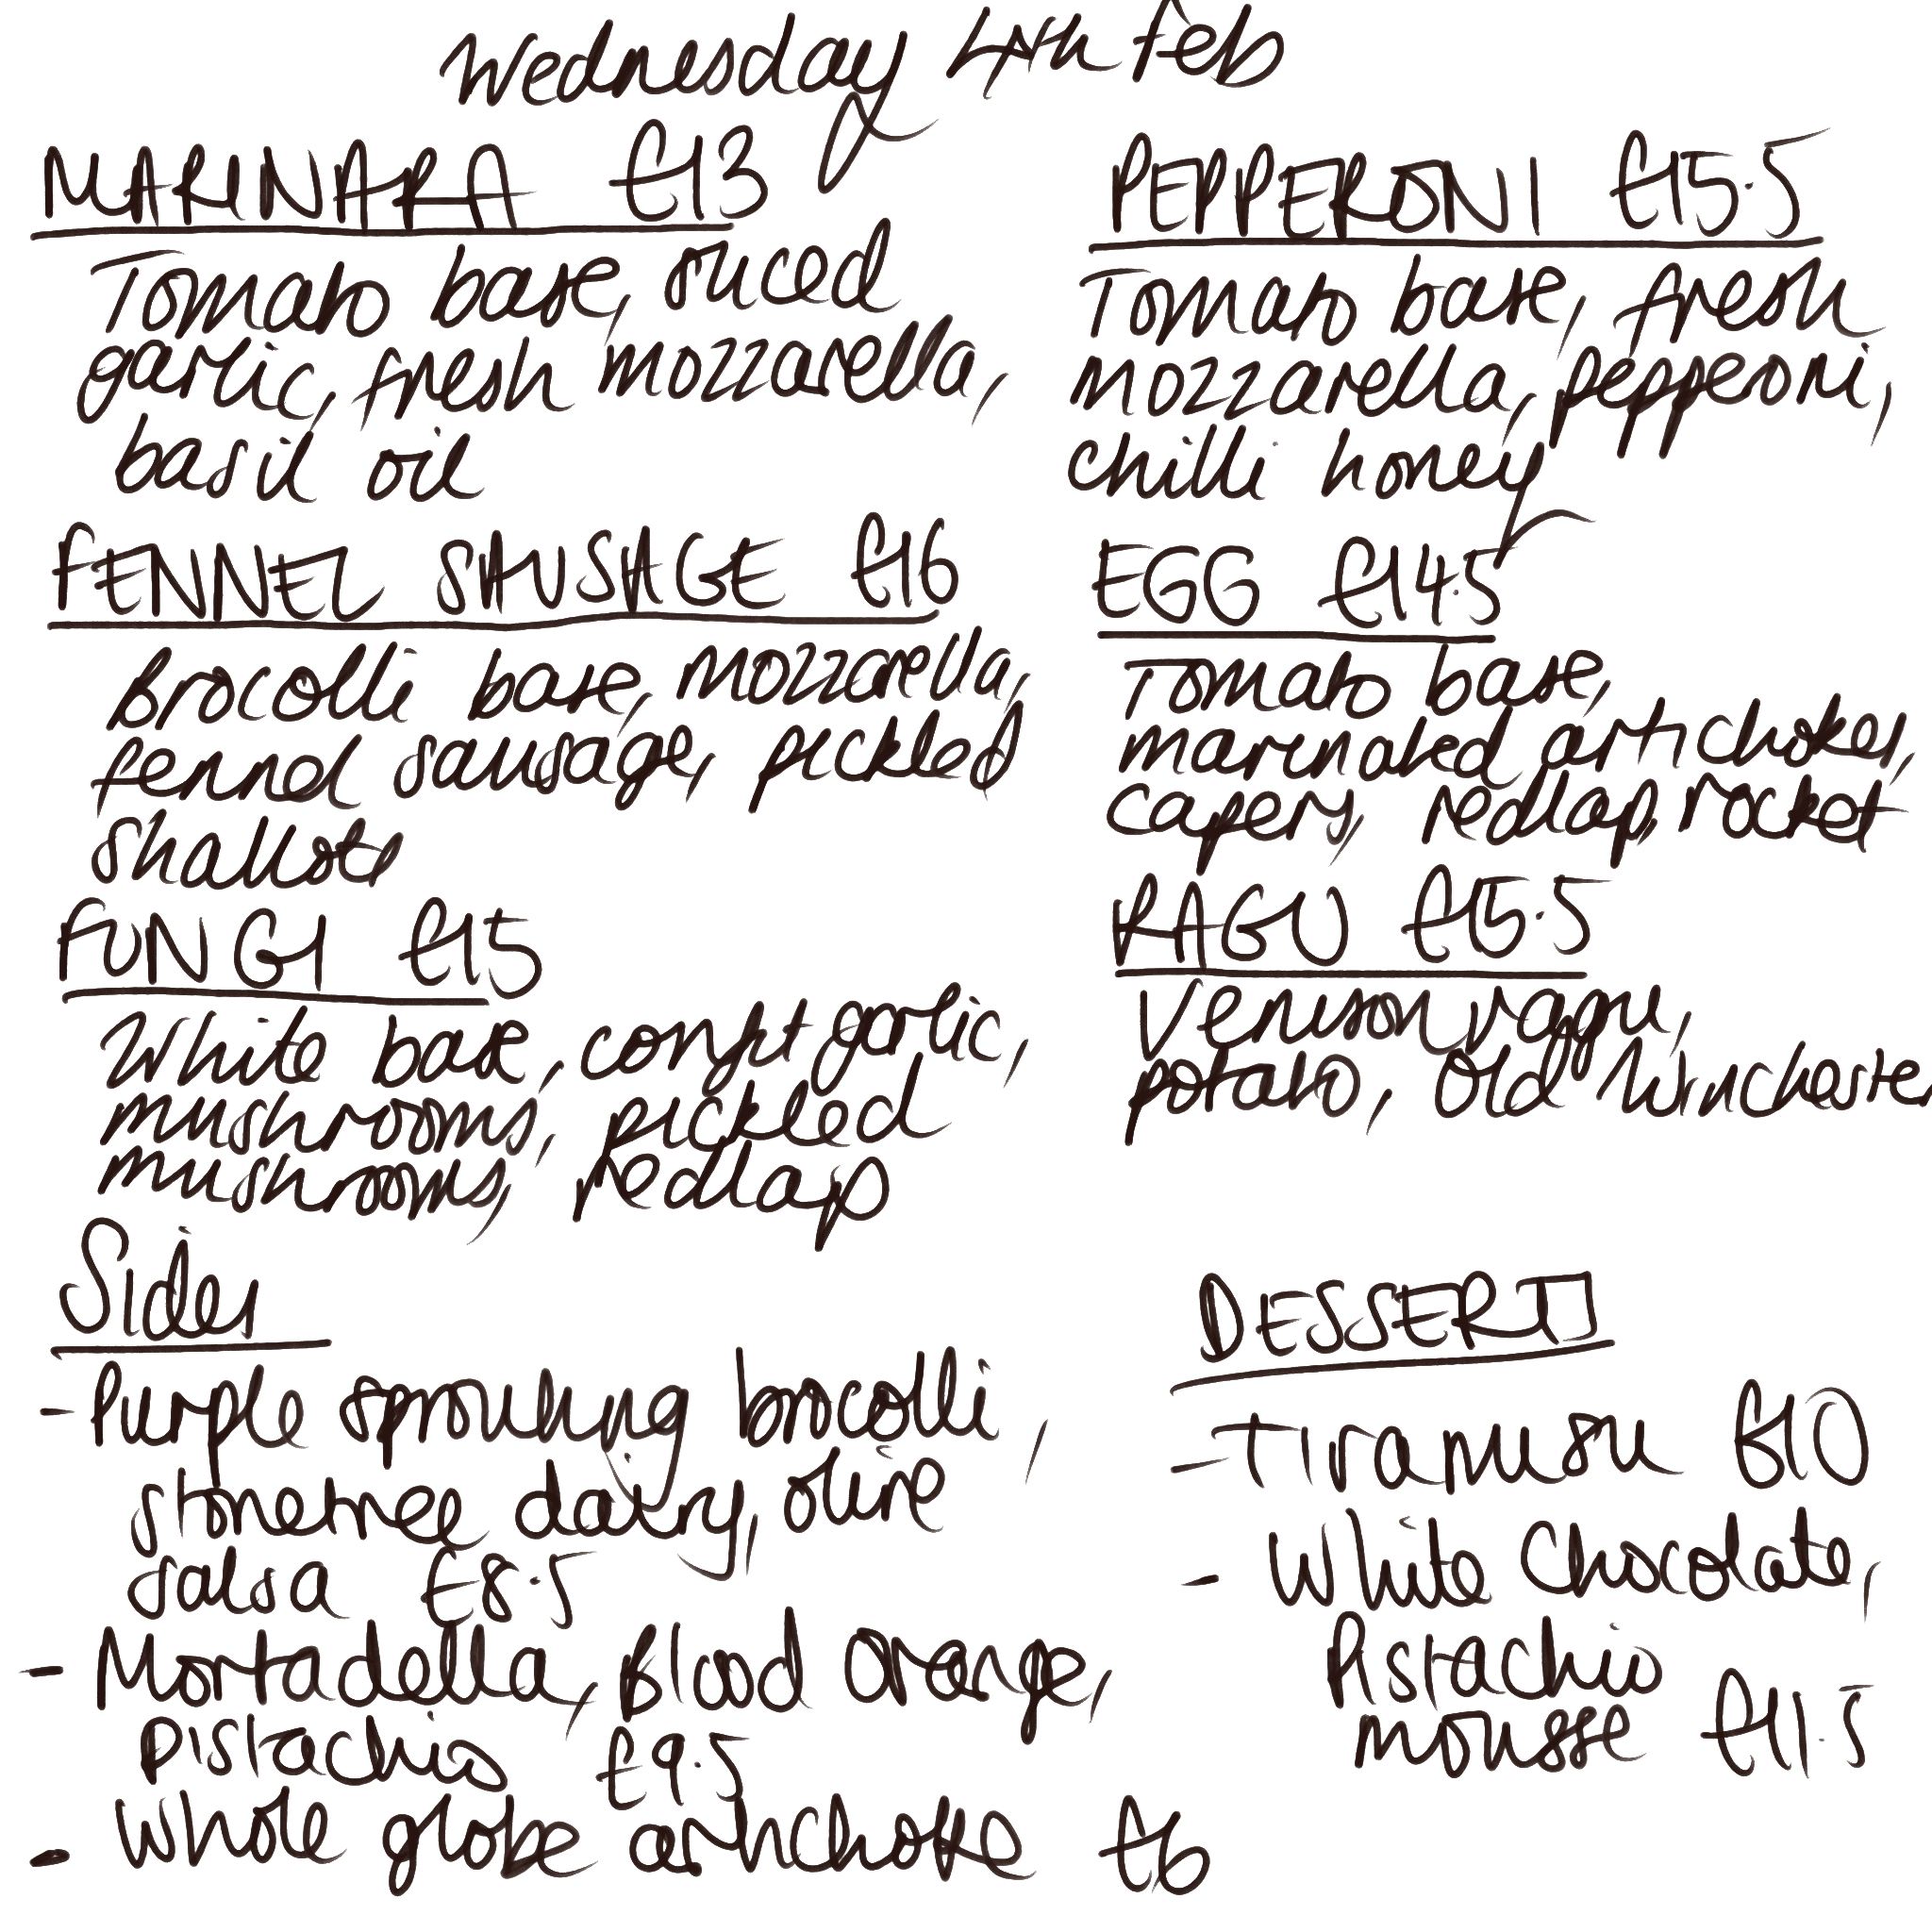 Wednesday 4th Feb
MARINARA £13
Tomato base, sliced
garlic, fresh mozzarella,
basil oil
FENNEL SAUSAGE £16
Brocolli base, mozzarella,
fennel sausage, pickled
shallots
FUNGI £15
White base, confit garlic,
mushrooms, pickled
mushrooms, redlap
PEPPERONI £15.5
Tomato base, fresh
mozzarella, pepperoni,
chilli honey
EGG £14.5
Tomato base,
marinated artichokes,
capers, redlap, rocket
RAGU £15.5
Venison ragu,
potato, Old Winchester
Sides
- Purple sprouting brocolli,
dairy, olive
salsa £8.5
- Mortadella, Blood orange,
pistachio £9.5
- Whole globe artichoke £6
DESSERTS
- Tiramisu £10
- White Chocolate,
Pistachio
mousse £11.5